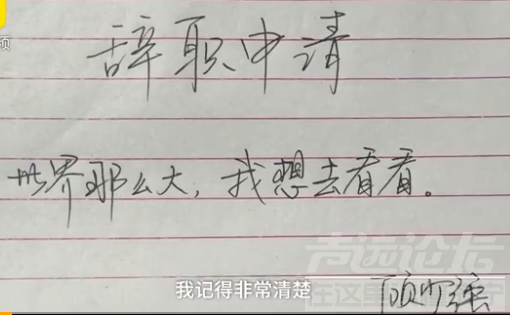 辞职申请
世界那么大，我想去看看。
顾少强
我记得非常清楚